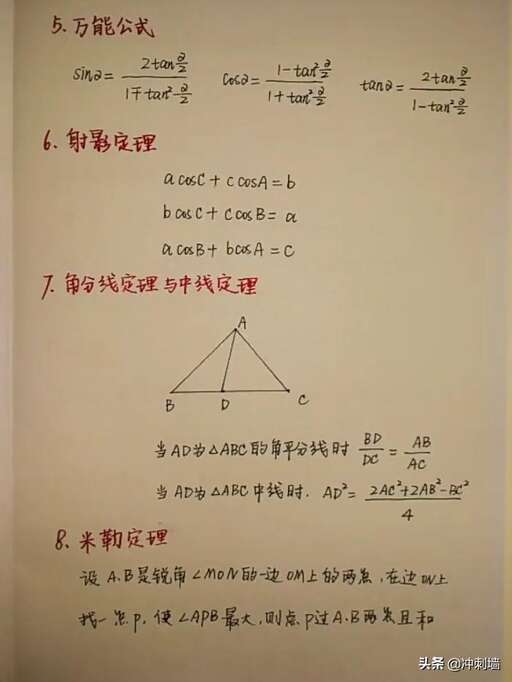 5. 万能公式
sin2 = 2tan 2/2 / 1+tan² 2/2 cos2 = 1-tan² 2/2 / 1+tan² 2/2 tan2 = 2tan 2/2 / 1-tan² 2/2
6. 射影定理
a cosC + c cosA = b
b cosC + c cosB = a
a cosB + b cosA = c
7. 角分线定理与中线定理
A
B D C
当AD为△ABC的角平分线时 BD/DC = AB/AC
当AD为△ABC中线时. AD² = 2AC²+2AB²-BC² / 4
8. 米勒定理
设A.B是锐角∠MON的一边OM上的两点,在边ON上
找一点P,使∠APB最大,则点P过A.B两点且和
头条@冲刺墙